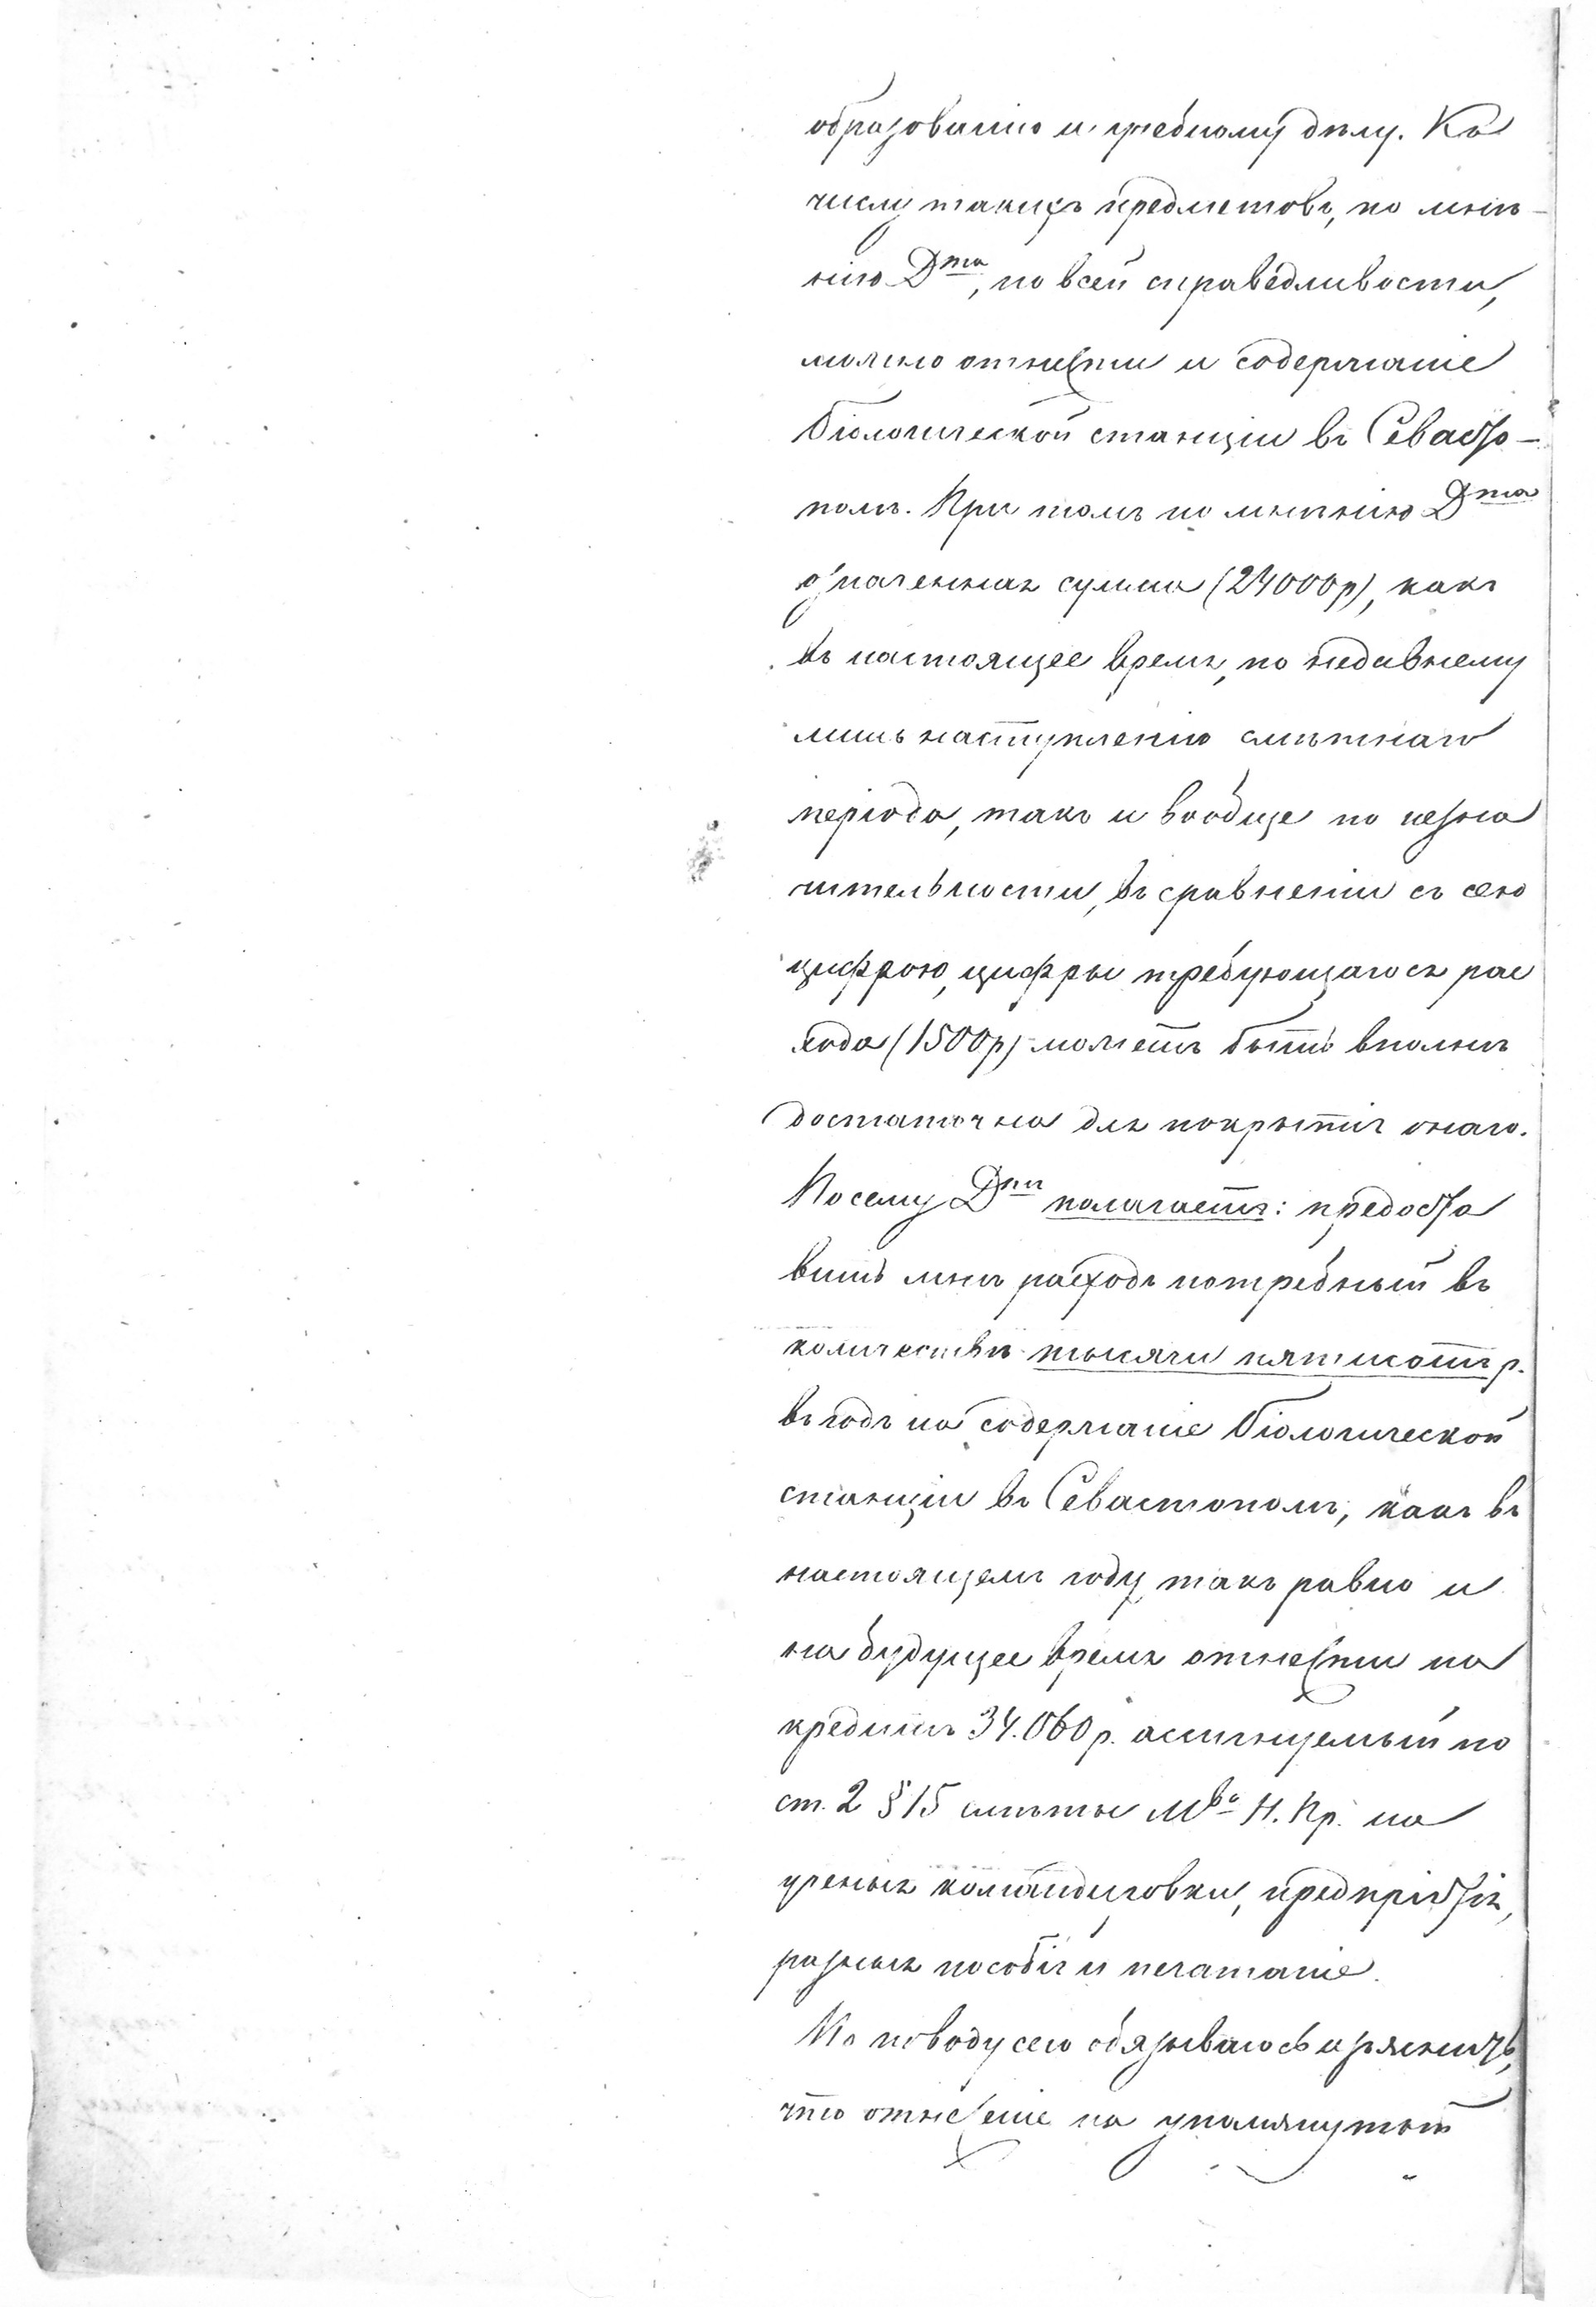 образованію и учебному дѣлу. Къ
числу такихъ предметовъ, по мнѣ-
нію Дта, по всей справедливости,
можно отнести и содержаніе
біологической станціи въ Севасто-
полѣ. При томъ по мнѣнію Дта
означенная сумма (24000р), какъ
въ настоящее время, по недавнему
лишь наступленію смѣтнаго
періода, такъ и вообще по незна
чительности, въ сравненіи съ сею
цифрою, цифры требующагося рас
хода (1500р) можетъ быть вполнѣ
достаточна для покрытія онаго.
Посему Дтъ полагаетъ: предоста
вить мнѣ расходъ потребный въ
количествѣ тысячи пятисотъ р.
въ годъ на содержаніе біологической
станціи въ Севастополѣ, какъ въ
настоящемъ году, такъ равно и
на будущее время отнести на
кредитъ 34.060 р. ассигнуемый по
ст. 2 § 15 смѣты Мва Н. Пр. на
ученыя командировки, предпріятія,
разныя пособія и печатаніе.
По поводу сего обязываюсь изъяснить,
что отнесеніе на упомянутый